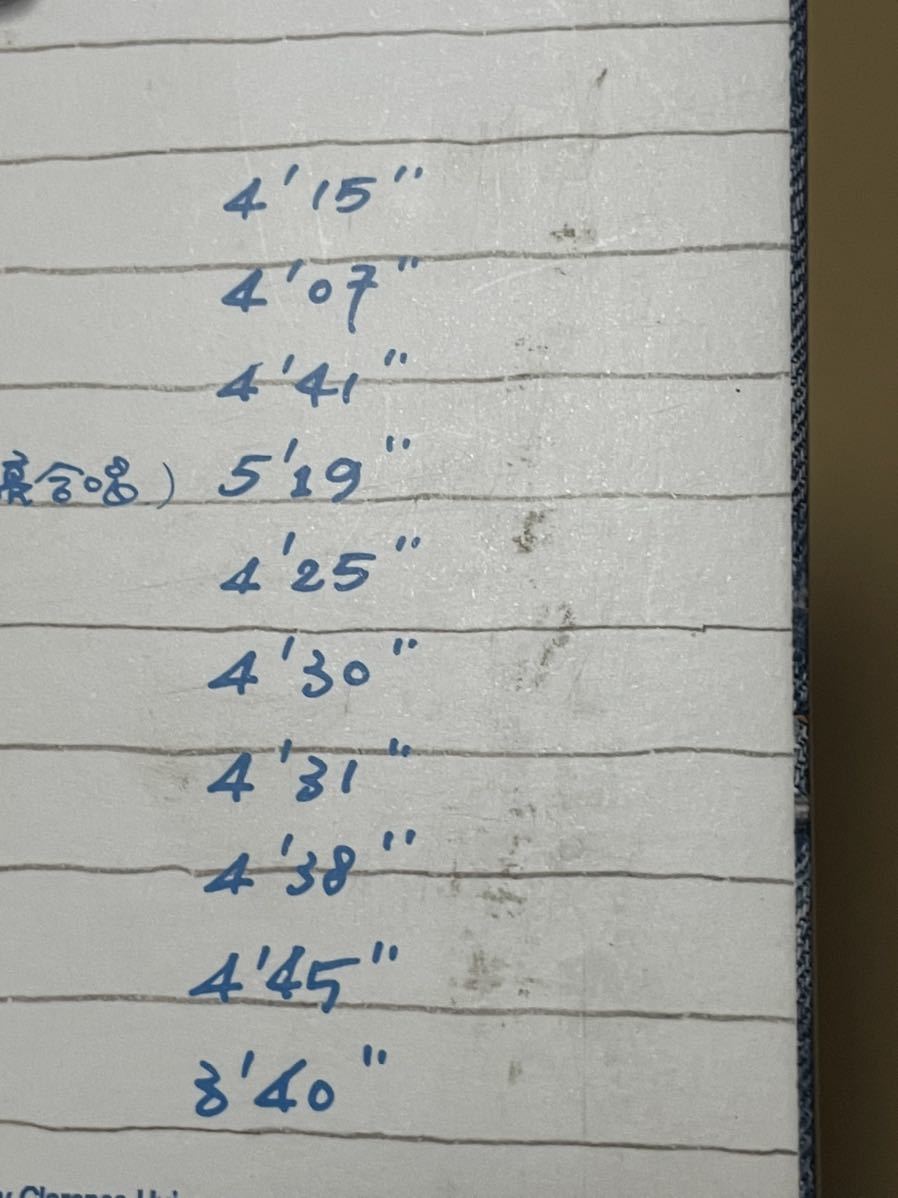 4'15"
4'07"
4'41"
合唱) 5'19"
4'25"
4'30"
4'31"
4'38"
4'45"
3'40"
Clarence Hui